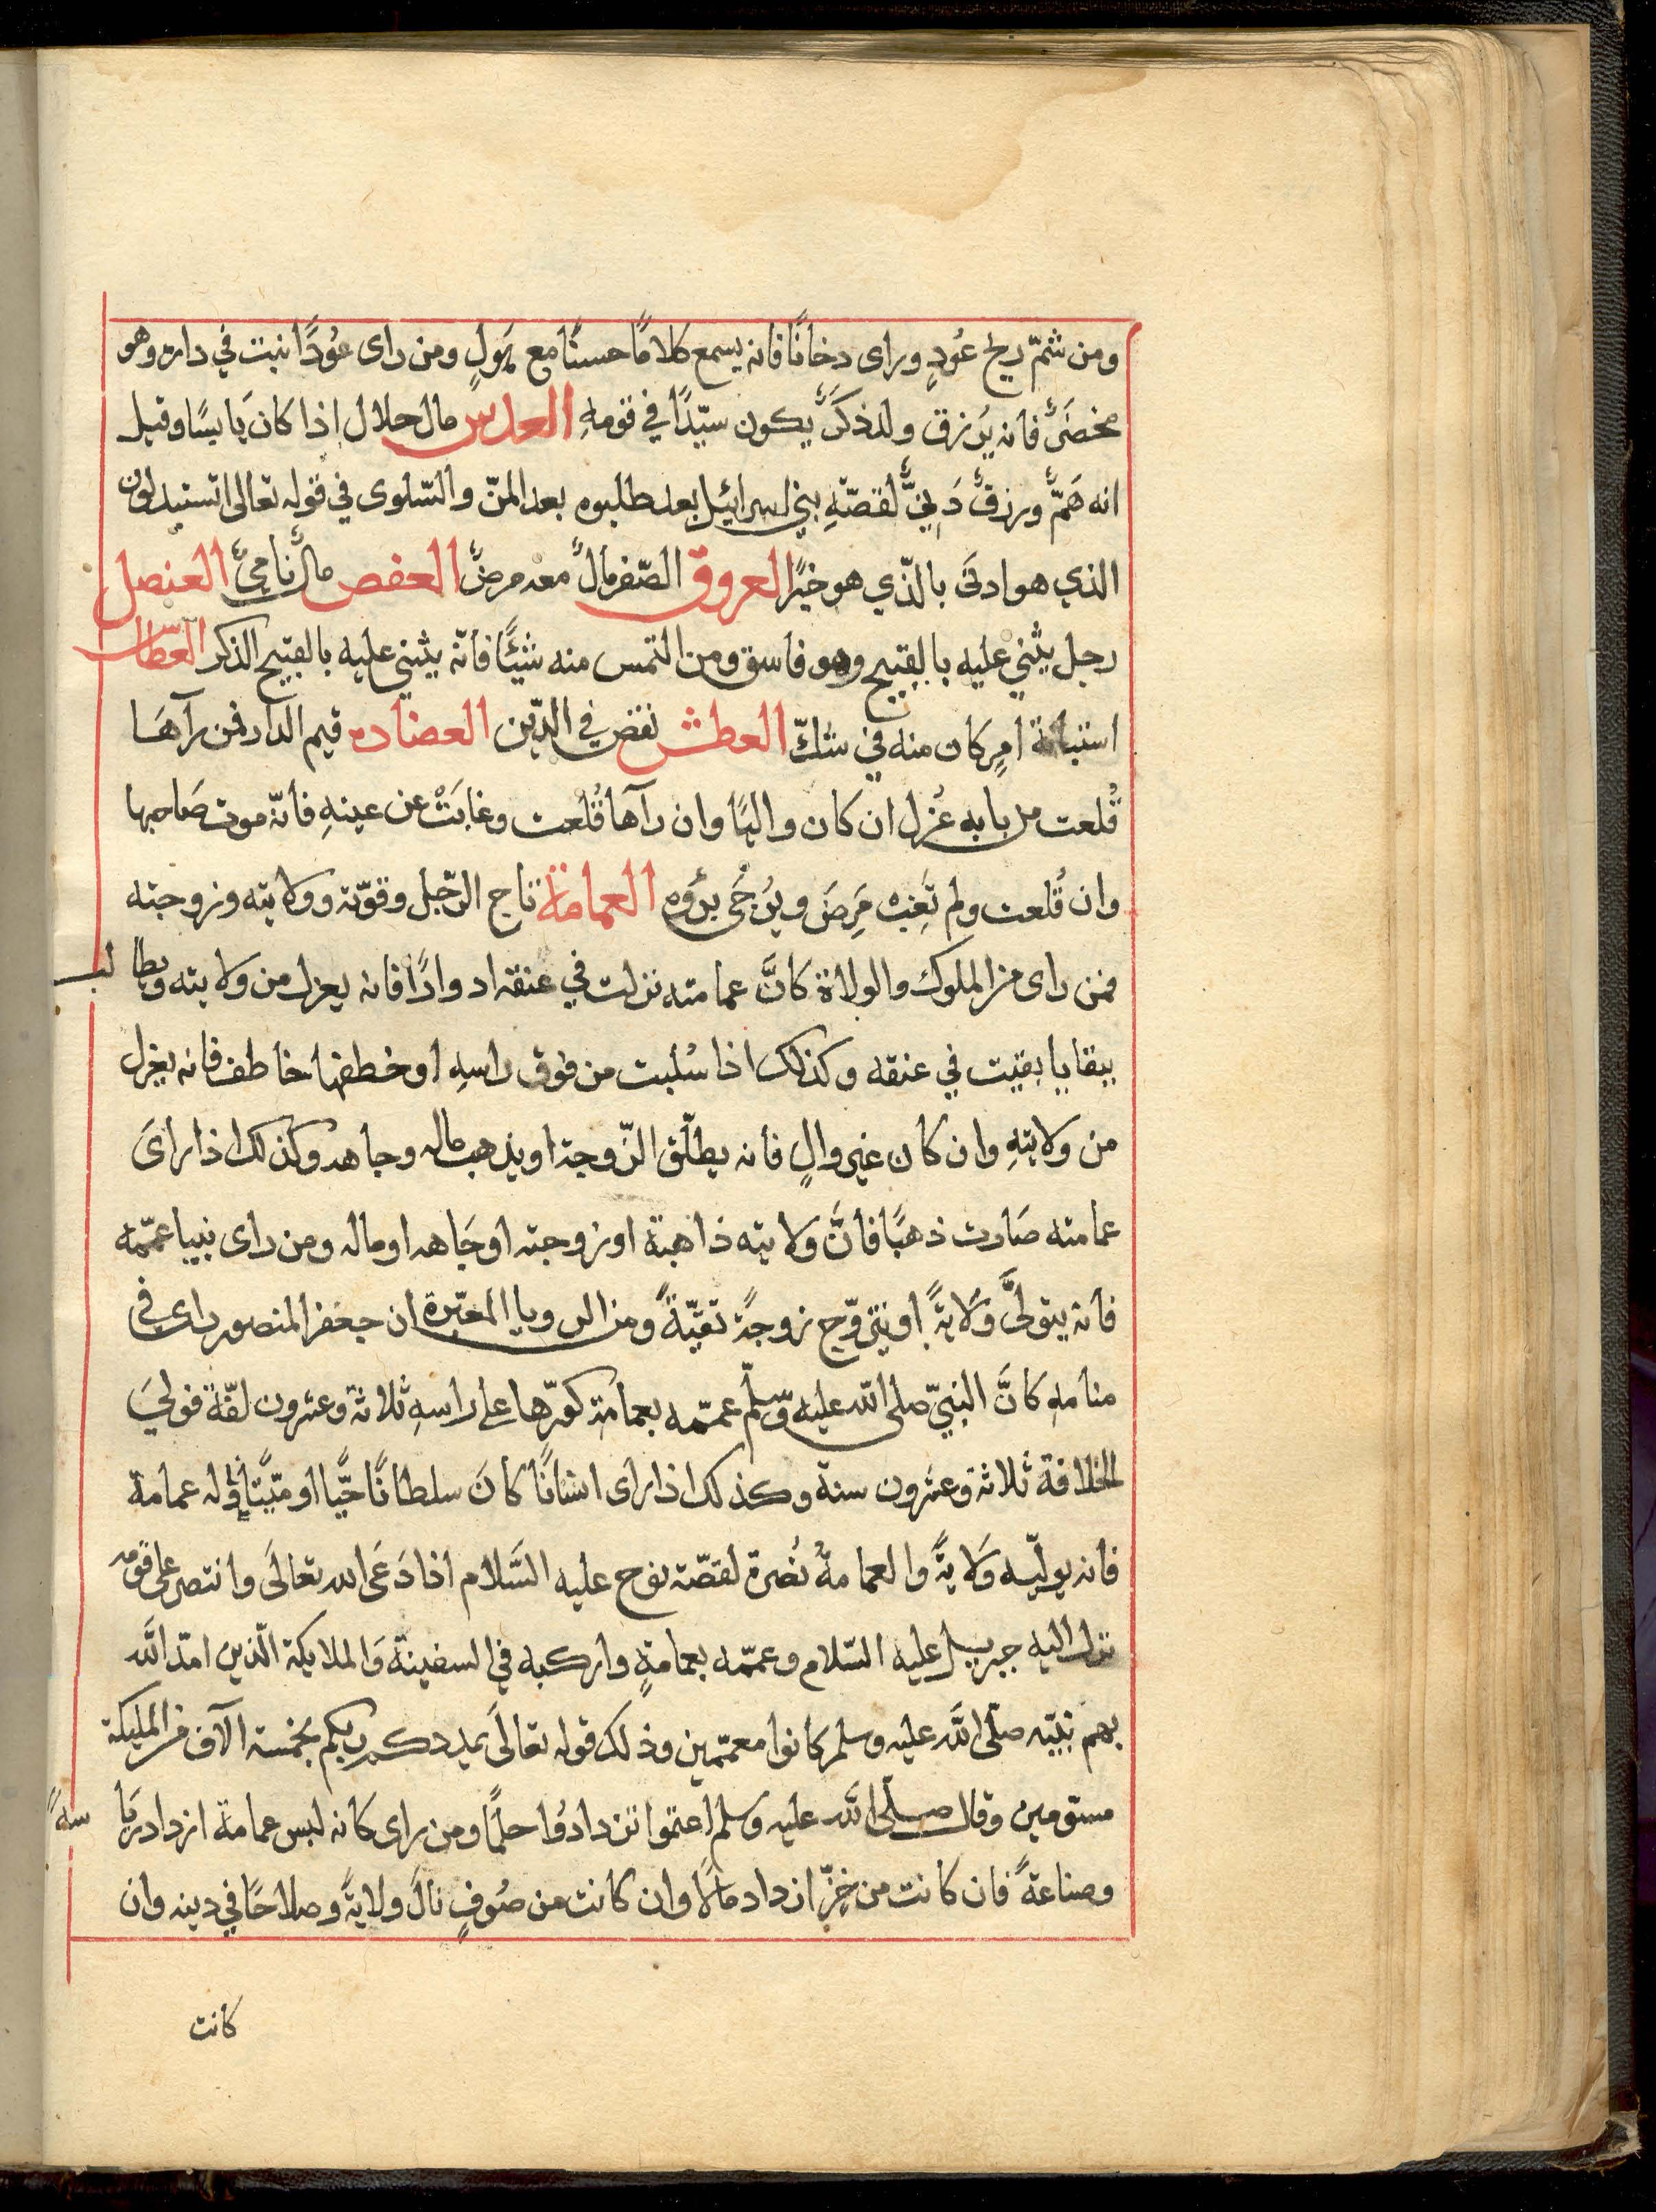 ومن شمّ ريح عُودٍ وراى دخانًا فانه يسمع كلامًا حسنًا مع هَولٍ ومن راى عُودًا ينبت في داره وهو
مخضَرٌّ فانه يُرزق ولدٌ ذكَرٌ يكون سيّدًا في قومهِ العدس مال حلال اذا كانَ يابسًا وقيل
انه هَمٌّ ورزقٌ دَنِيٌّ لقصّةِ بني اسرائيل بعد طلبوه بعد المنّ والسّلوى في قوله تعالى اتستبدلون
الذي هو ادنَى بالّذي هو خيرًا العروق الصّفر مالٌ معه مرضٌ العفص مالٌ نامِيٌ العنصل
رجل يثني عليه بالقبيح وهو فاسق ومن التمس منه شيئًا فانّه يثني عليه بالقبيح الذكر العطاس
استبانة امرٍ كان منه في شكّ العطش نقض في الدّين العضاده قيم الدار فمن رآهَا
قُلعت من بابه عُزل ان كان واليًا وان رآها قُلعت وغابَتْ عن عينهِ فانّه موت صَاحبها
وان قُلعت ولم تَغِب مَرِضَ ويُرجَى برؤه العمامة تاج الرّجل وقوّته وولايته وزوجته
فمن راى من الملوك والولاة كانَّ عمامته نزلت في عنقه ادوارًا فانه يعزل من ولايته ويطالب
ببقايا بقيت في عنقه وكذلك اذا سُلبت من فوق راسهِ او خطفها خاطف فانه يعزل
من ولايتهِ وان كان غير والٍ فانه يطلّق الزّوجة او يذهب ماله وجاهه وكذلك اذا راىَ
عمامته صَارت ذهبًا فانَّ وَلايته ذاهبة او زوجته او جَاهه او ماله ومن راى نبيا عمّمه
فانه يتولَّى وَلايةً او يتزوّج زوجةً تقيّةً ومن الرويا المعبّرة ان جعفر المنصور راى في
منامهِ كانَّ النبيّ صلى الله عليه وسلّم عممّه بعمامةٍ كوّرها على راسهِ ثلاثة وعشرون لفّةً فوليَ
الخلافة ثلاثة وعشرون سنة وكذلك اذا راى انسَانًا كانَ سلطانًا حَيًّا او ميّتًا ولّه عمامة
فانه يولّيه وَلايةً والعمامةُ نُصرة لقصّة نوح عليه السَّلام اذا دَعَى الله تعالَى وانتصر على قومه
نزل اليه جبريل عليه السّلام وعممّه بعمامةٍ واركبه في السفينة وَالملايكة الّذينَ امدّ الله
بهم نبيّه صلّى الله عليه وسلم كانوا معمّمين وذلك قوله تعالَى يمددكم ربكم بخمسة الآف من المليكة
مسوّمين وقال صلّى الله عليه وسلم اعتموا تزدادُوا حلمًا ومن راى كانه لبس عمامة ازداد رَياسةً
وصناعةً فان كانت من خزّ ازداد مالًا وان كانت من صُوفٍ نالَ ولايةً وصلاحًا في دينه وان
كانت